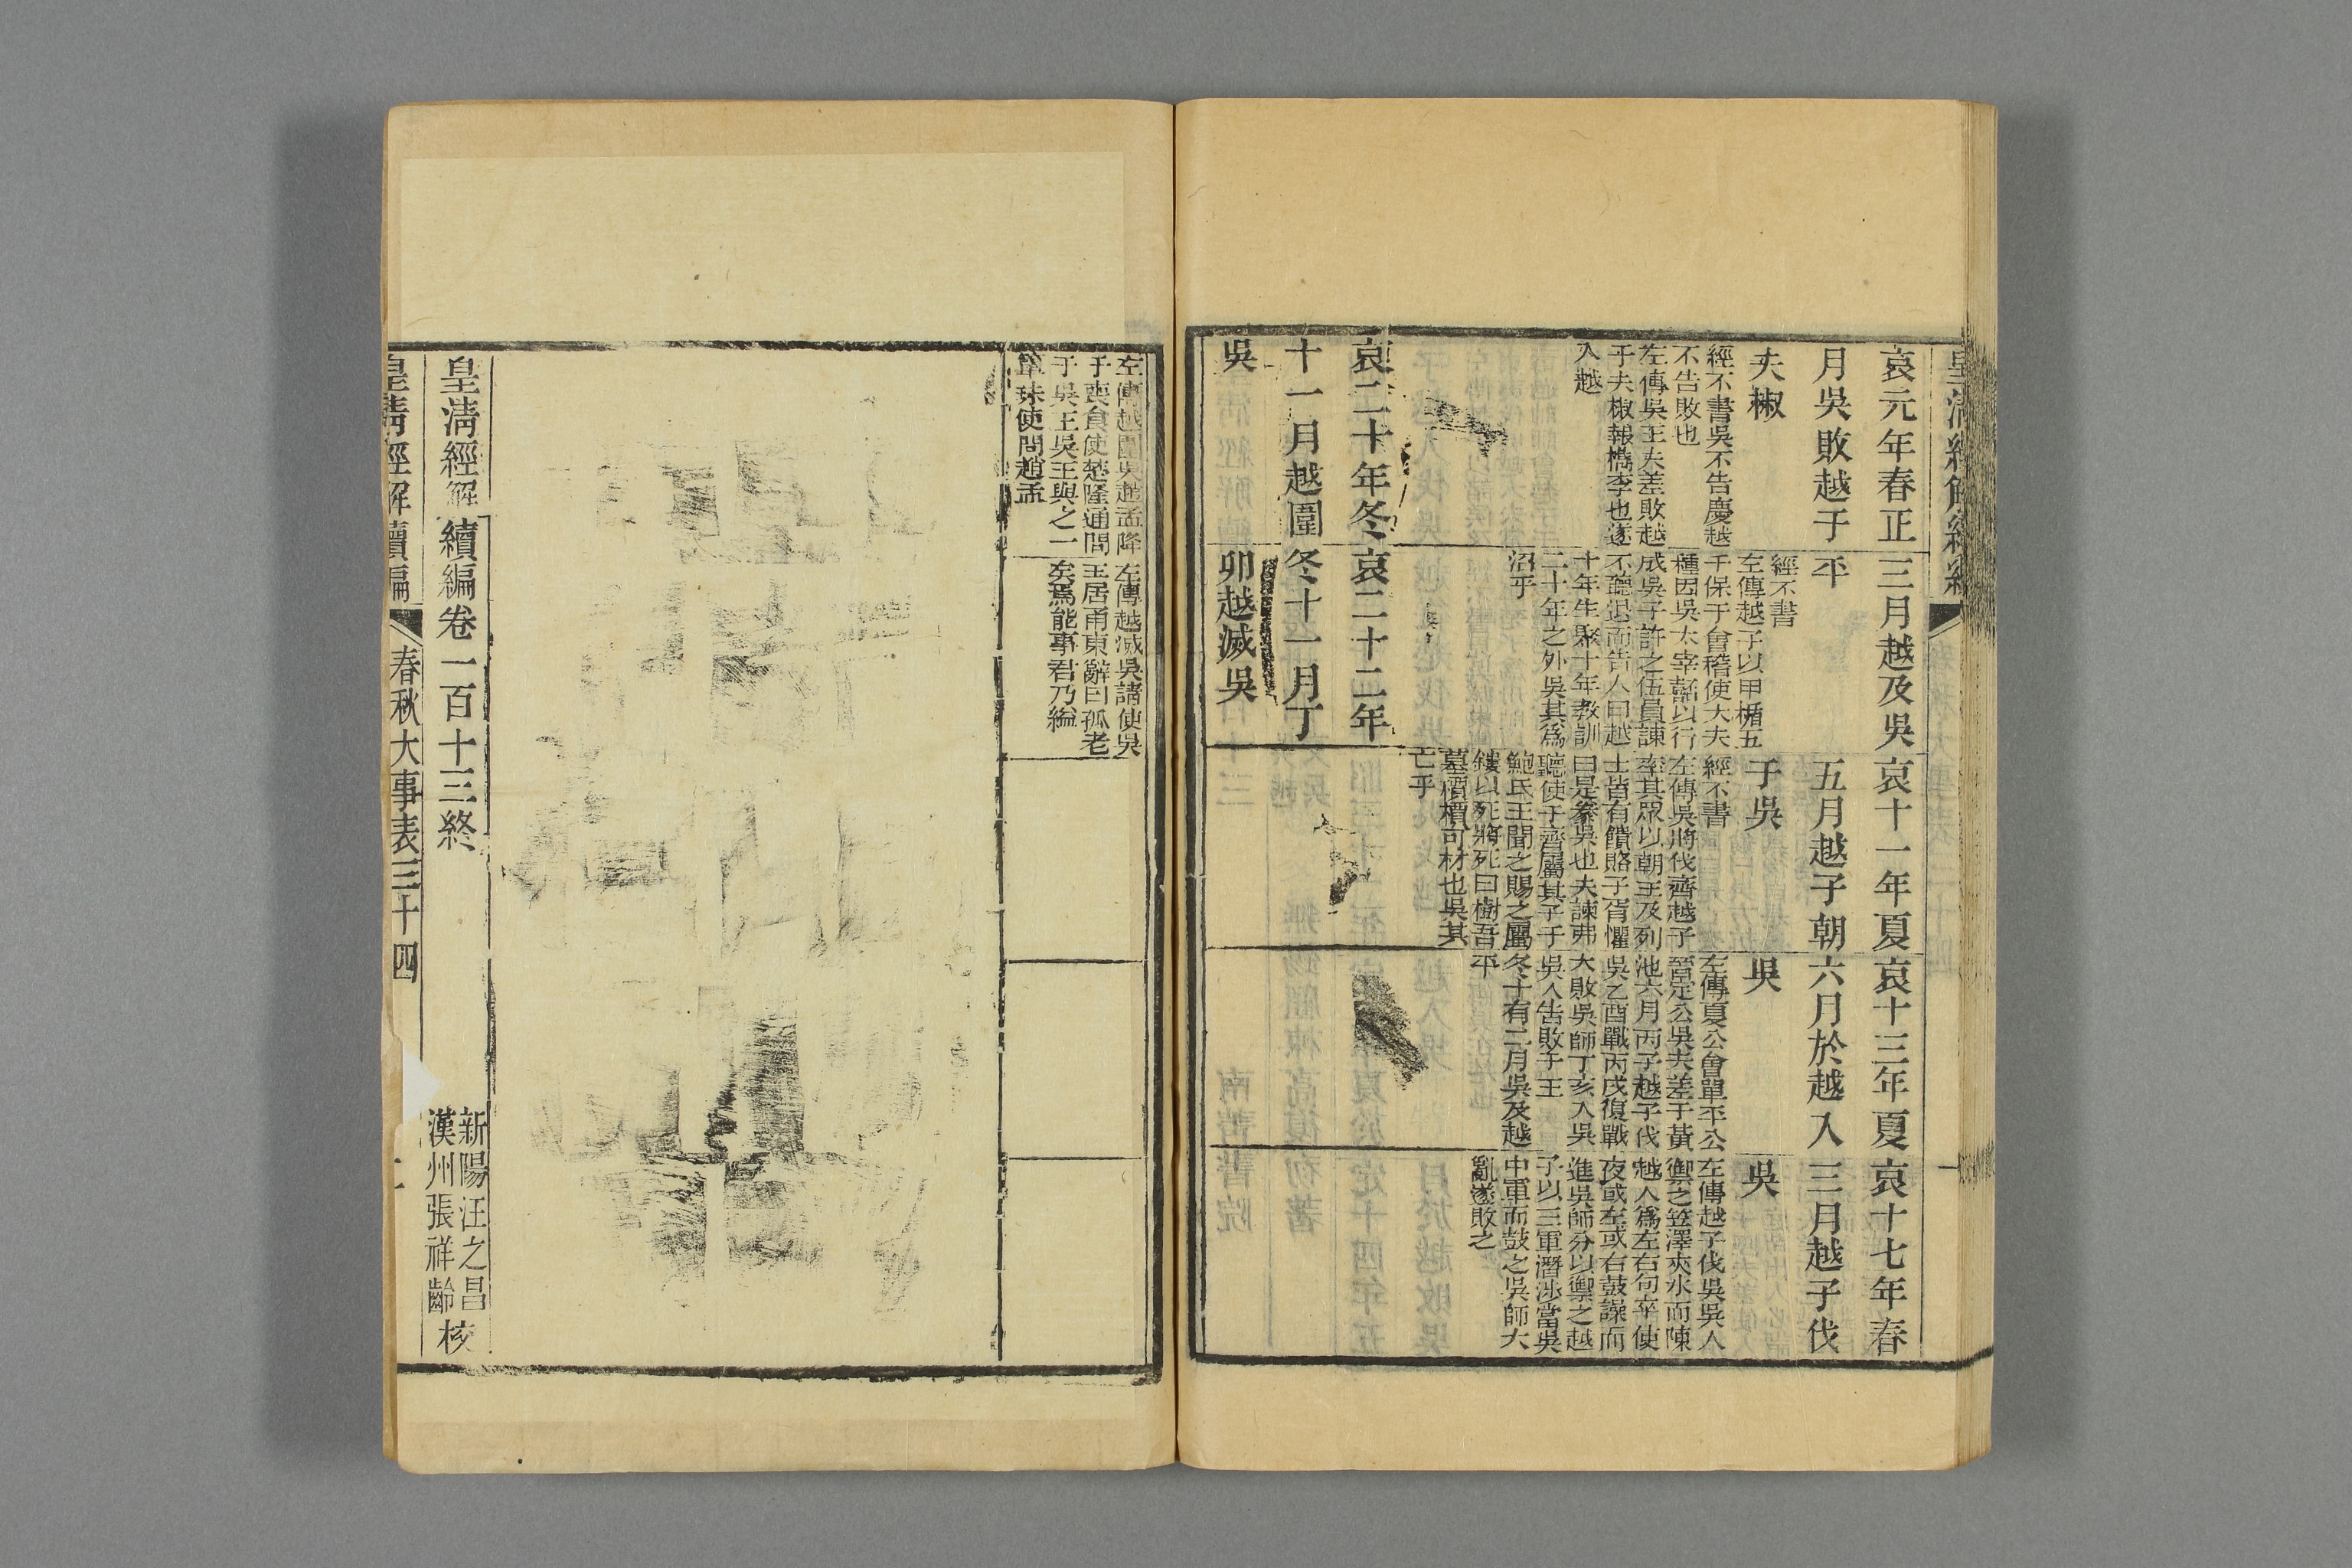 哀元年春正
月吳敗越于
夫椒
經不書吳不告慶越
不告敗也
左傳吳王夫差敗越
于夫椒報檇李也遂
入越
三月越及吳
平
經不書
左傳越子以甲楯五
千保于會稽使大夫
種因吳大宰嚭以行
成吳子許之伍員諫
不聽退而告人曰越
十年生聚十年教訓
二十年之外吳其爲
沼乎
哀十一年夏
五月越子朝
于吳
經不書
左傳吳將伐齊越子
率其眾以朝王及列
士皆有饋賂子胥懼
曰是豢吳也夫諫弗
聽使于齊屬其子于
鮑氏王聞之賜之屬
鏤以死將死曰樹吾
墓檟檟可材也吳其
亡乎
哀十三年夏
六月於越入
吳
左傳夏公會單平公
晉定公吳夫差于黃
池六月丙子越子伐
吳乙酉戰丙戌復戰
大敗吳師丁亥入吳
吳人告敗于王
冬十有二月吳及越
平
哀十七年春
三月越子伐
吳
左傳越子伐吳吳人
禦之笠澤夾水而陳
越人爲左右句卒使
夜或左或右鼓譟而
進吳師分以禦之越
子以三軍潛涉當吳
中軍而鼓之吳師大
亂遂敗之
哀二十年冬
十一月越圍
吳
哀二十二年
冬十一月丁
卯越滅吳
左傳越圍吳趙孟降
于喪食使楚隆通問
于吳王吳王與之一
簞珠使問趙孟
左傳越滅吳請使吳
王居甬東辭曰孤老
矣焉能事君乃縊
皇清經解續編卷一百十三終
新陽汪之昌
漢州張祥齡校
皇清經解續編
春秋大事表三十四